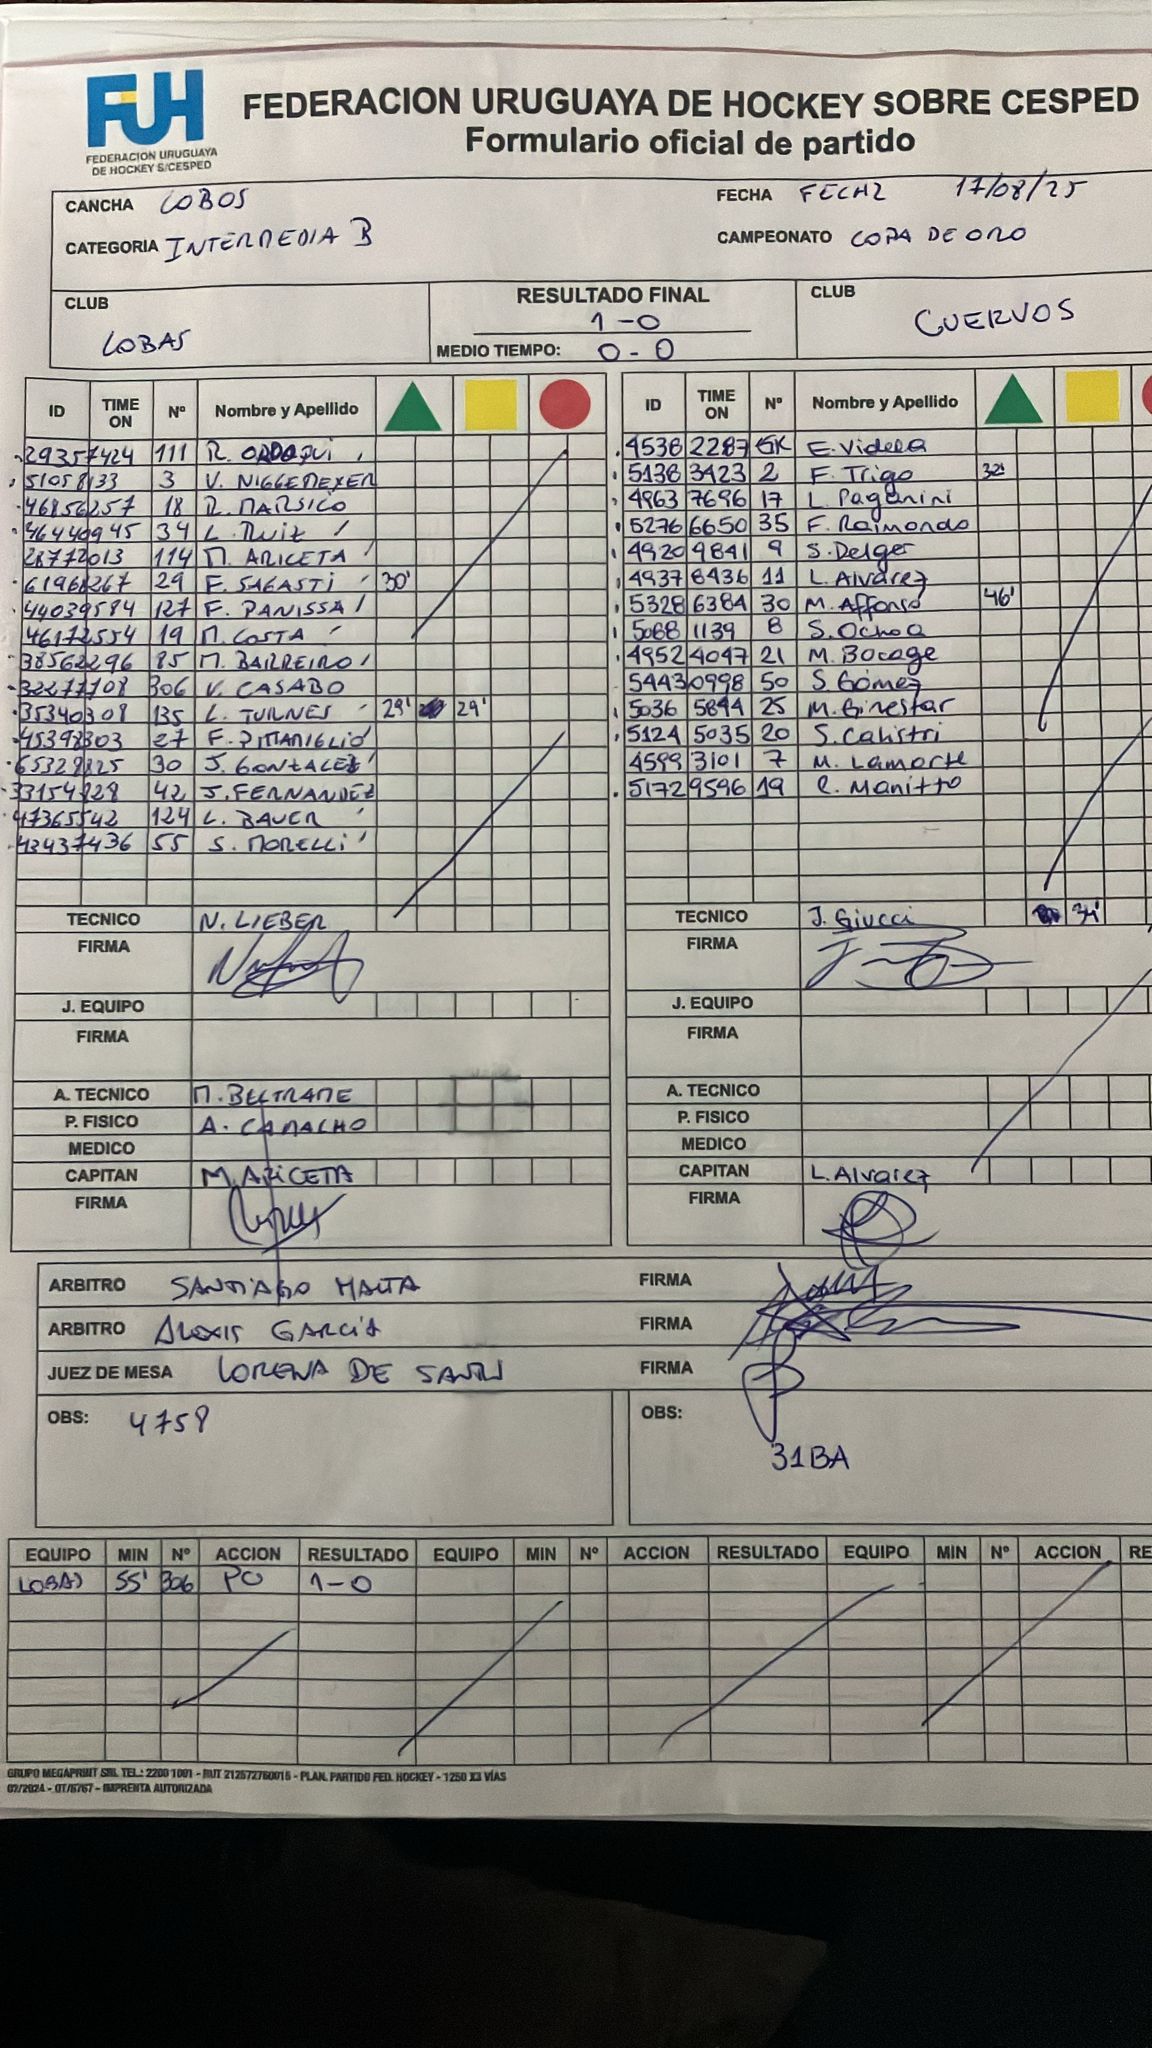 FUH
FEDERACION URUGUAYA
DE HOCKEY S/CESPED
FEDERACION URUGUAYA DE HOCKEY SOBRE CESPED
Formulario oficial de partido
CANCHA LOBOS FECHA FECH2 17/08/25
CATEGORIA INTERMEDIA B CAMPEONATO COPA DE ORO
CLUB LOBAS
RESULTADO FINAL 1-0
MEDIO TIEMPO: 0-0
CLUB CUERVOS
ID TIME ON Nº Nombre y Apellido
29357424 111 R. ORDOQUI
51058133 3 V. NIGGEMEYER
46856257 18 R. MARSICO
46440945 34 L. RUIZ
28772013 114 M. ARICETA
61968267 29 F. SAGASTI 30'
44039584 127 F. PANISSA
46172554 19 M. COSTA
38562296 85 M. BARREIRO
32277708 306 V. CASABO
35340308 135 L. TURNES 29' 29'
45398303 27 F. PIMANIGLIO
65328825 30 J. GONZALEZ
33154828 42 J. FERNANDEZ
47365542 124 L. BAUER
43437436 55 S. MORELLI
TECNICO N. LIEBER
FIRMA
J. EQUIPO
FIRMA
A. TECNICO M. BELTRAME
P. FISICO A. CAMACHO
MEDICO
CAPITAN M. ARICETA
FIRMA
ID TIME ON Nº Nombre y Apellido
4536 2287 GK E. Videla
5138 3423 2 F. Trigo 32'
4963 7696 17 L. Paganini
5276 6650 35 F. Raimondo
4920 9841 9 S. Delger
4937 8436 11 L. Alvarez
5328 6384 30 M. Affonso 46'
5068 1139 8 S. Ochoa
4952 4047 21 M. Bocage
5443 0998 50 S. Gómez
5036 5844 25 M. Ginestar
5124 5035 20 S. Calistri
4599 3101 7 M. Lamorte
5172 9596 19 C. Manitto
TECNICO J. Giucci 34'
FIRMA
J. EQUIPO
FIRMA
A. TECNICO
P. FISICO
MEDICO
CAPITAN L. Alvarez
FIRMA
ARBITRO SANTIAGO MALTA FIRMA
ARBITRO ALEXIS GARCIA FIRMA
JUEZ DE MESA LORENA DE FIRMA
OBS: 4758
OBS: 31BA
EQUIPO MIN Nº ACCION RESULTADO EQUIPO MIN Nº ACCION RESULTADO EQUIPO MIN Nº ACCION RE
LOBAS 55' 306 PC 1-0
GRUPO MEGAPRINT SRL TEL.: 2200 1001 - RUT 212572760015 - PLAN. PARTIDO FED. HOCKEY - 1250 X3 VÍAS
02/2024 - OT/6767 - IMPRENTA AUTORIZADA